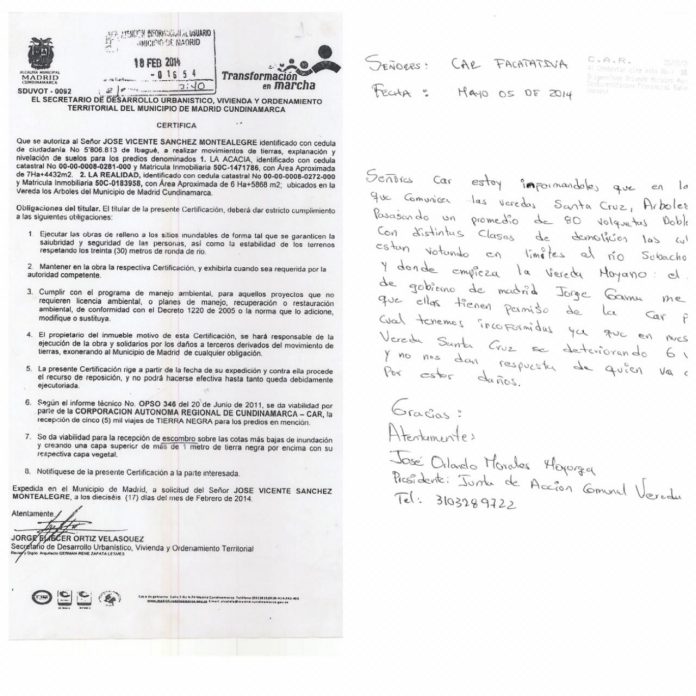 ALCALDIA MUNICIPAL
MADRID
CUNDINAMARCA
SDUVOT - 0092
18 FEB 2014
Transformación
en marcha
EL SECRETARIO DE DESARROLLO URBANISTICO, VIVIENDA Y ORDENAMIENTO
TERRITORIAL DEL MUNICIPIO DE MADRID CUNDINAMARCA
CERTIFICA
Que se autoriza al Señor JOSE VICENTE SANCHEZ MONTEALEGRE identificado con cedula
de ciudadanía No 5'806.813 de Ibagué, a realizar movimientos de tierras, explanación y
nivelación de suelos para los predios denominados 1. LA ACACIA, identificado con cedula
catastral No 00-00-0008-0281-000 y Matricula Inmobiliaria 50C-1471786, con Area Aproximada
de 7Ha+4432m2. 2. LA REALIDAD, identificado con cedula catastral No 00-00-0008-0272-000
y Matricula Inmobiliaria 50C-0183958, con Área Aproximada de 6 Ha+5868 m2; ubicados en la
Vereda los Arboles del Municipio de Madrid Cundinamarca.
Obligaciones del titular. El titular de la presente Certificación, deberá dar estricto cumplimiento
a las siguientes obligaciones:
1. Ejecutar las obras de relleno a los sitios inundables de forma tal que se garanticen la
salubridad y seguridad de las personas, así como la estabilidad de los terrenos
respetando los treinta (30) metros de ronda de rio.
2. Mantener en la obra la respectiva Certificación, y exhibirla cuando sea requerida por la
autoridad competente.
3. Cumplir con el programa de manejo ambiental, para aquellos proyectos que no
requieren licencia ambiental, o planes de manejo, recuperación o restauración
ambiental, de conformidad con el Decreto 1220 de 2005 o la norma que lo adicione,
modifique o sustituya.
4. El propietario del inmueble motivo de esta Certificación, se hará responsable de la
ejecución de la obra y solidarios por los daños a terceros derivados del movimiento de
tierras, exonerando al Municipio de Madrid de cualquier obligación.
5. La presente Certificación rige a partir de la fecha de su expedición y contra ella procede
el recurso de reposición, y no podrá hacerse efectiva hasta tanto quede debidamente
ejecutoriada.
6. Según el informe técnico No. OPSO 346 del 20 de Junio de 2011, se da viabilidad por
parte de la CORPORACION AUTONOMA REGIONAL DE CUNDINAMARCA – CAR, la
recepción de cinco (5) mil viajes de TIERRA NEGRA para los predios en mención.
7. Se da viabilidad para la recepción de escombro sobre las cotas más bajas de inundación
y creando una capa superior de más de 1 metro de tierra negra por encima con su
respectiva capa vegetal.
8. Notifíquese de la presente Certificación a la parte interesada.
Expedida en el Municipio de Madrid, a solicitud del Señor JOSE VICENTE SANCHEZ
MONTEALEGRE, a los dieciséis (17) días del mes de Febrero de 2014.
Atentamente
JORGE ELIECER ORTIZ VELASQUEZ
Secretario de Desarrollo Urbanístico, Vivienda y Ordenamiento Territorial
SEÑORES: CAR FACATATIVA
FECHA : MAYO 05 DE 2014
C.A.R.
Señores Car estoy informandoles que en la
que Comunica las veredas Santa Cruz, Arboles
Pasando un promedio de 80 volquetas Doble
Con distintas Clases de demolicion las
estan votando en limites al río Subacho
y donde empieza la Vereda Moyano: el
de gobierno de madrid Jorge Gama me
que ellos tienen permiso de la Car
Cual tenemos incoformidas ya que en
Vereda Santa Cruz se deteriorando 6
y no nos dan respuesta de quien va
Por estos daños.
Gracias:
Atentamente:
José Orlando Morales Mayorga
Presidente: Junta de Accion Comunal Vereda
Tel: 3103289722